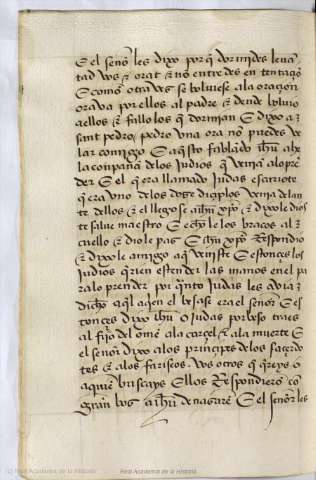 E el señor les dixo por q̃ dormides leuan
tad vos & orat & nõ entredes en tentaçõ
E como otra ves se boluiese ala oraçion
oraua por ellos al padre & dende boluio
a ellos & fallolos q̃ dormian E dixo a
sant pedro pedro vna ora nõ puedes ve
lar comigo E aq̃sto fablãdo ihũ ahe
la conpaña delos judios que venia alo prẽ
der E el q̃ era llamado judas escariote
q̃ era vno delos doze diçiplos venia delan
te dellos & el llego se a ihũ xp̃o & dixole dios
te salue maestro E echole los braços al
cuello & diole pas E ihũ xp̃o Respondio
& dixole amigo a q̃ veniste E estonces los
judios q̃rien estender las manos en el pa
ralo prender por q̃nto judas les auia
dicho aql̃ aqen el besase era el señor E es
tonçes dixo ihũ O judas por beso traes
al fijo del ome ala carçel & ala muerte E
el señor dixo alos prinçipes delos saçerdo
tes & alos fariseos vos otros que q̃reys o
a quien buscays Ellos Respondierõ cõ
gran bos a ihũ de nasare E el señor les
(c) Real Academia de la Historia
Real Academia de la Historia